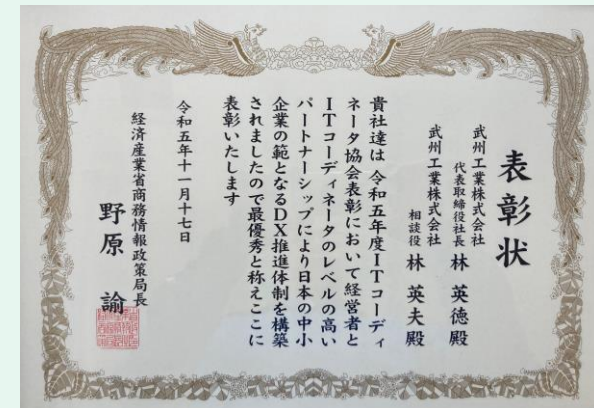 表彰状
武州工業株式会社
代表取締役社長 林 英徳殿
武州工業株式会社
相談役 林 英夫殿
貴社達は 令和五年度ITコーディ
ネータ協会表彰において経営者と
ITコーディネータのレベルの高い
パートナーシップにより日本の中小
企業の範となるDX推進体制を構築
されましたので最優秀と称えここに
表彰いたします
令和五年十一月十七日
経済産業省商務情報政策局長
野原 諭